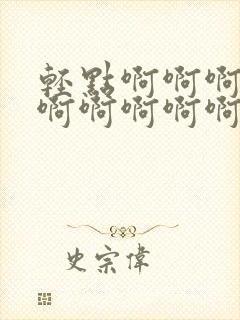 輕點啊啊啊
啊啊啊啊啊
史宗偉